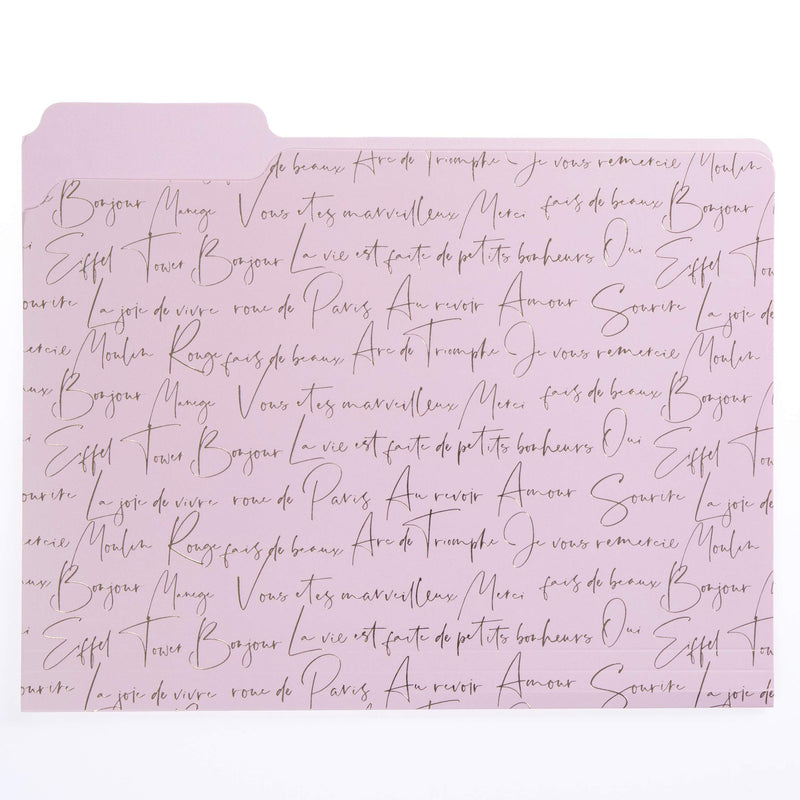 de beaux Arc de Triomphe Je vous remercie Moulin
Bonjour Manege Vous etes marveilleux Merci fais de beaux Bonjour
Eiffel Tower Bonjour La vie est faite de petits bonheurs Oui Eiffel Tower
ourire La joie de vivre roue de Paris Au revoir Amour Sourire La joie de
ercie Moulin Rouge fais de beaux Arc de Triomphe Je vous remercie Moulin
aux Bonjour Manege Vous etes marveilleux Merci fais de beaux Bonjour
Eiffel Tower Bonjour La vie est faite de petits bonheurs Oui Eiffel To
ourire La joie de vivre roue de Paris Au revoir Amour Sourire La joie de
ercie Moulin Rouge fais de beaux Arc de Triomphe Je vous remercie Moulin
aux Bonjour Manege Vous etes marveilleux Merci fais de beaux Bonjour
Eiffel Tower Bonjour La vie est faite de petits bonheurs Oui Eiffel To
ourire La joie de vivre roue de Paris Au revoir Amour Sourire La joie de